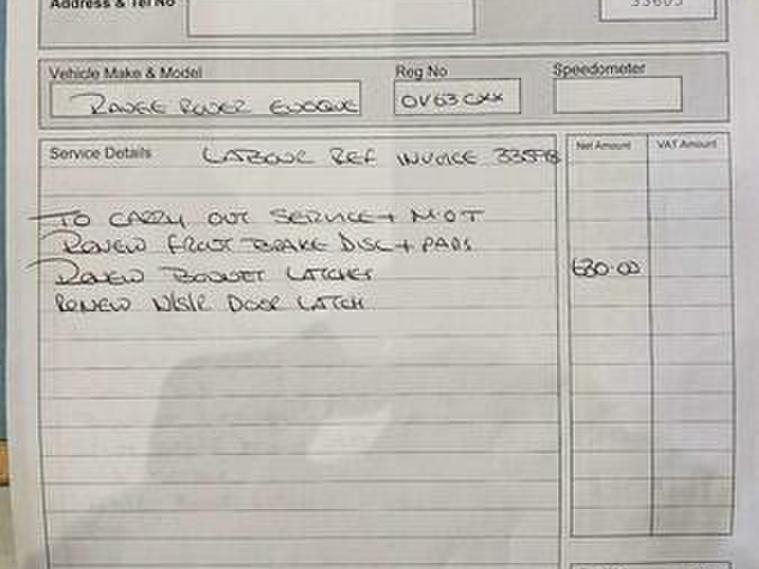 Address & Tel No
33605
Vehicle Make & Model Reg No Speedometer
RANGE ROVER EVOQUE OV63CXX
Service Details LABOUR REF INVOICE Net Amount VAT Amount
TO CARRY OUT SERVICE + M.O.T
RENEW FRONT BRAKE DISC + PADS
RENEW BONNET LATCHES 680.00
RENEW N/S/R DOOR LATCH